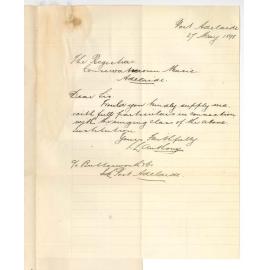 Port Adelaide
27 May 1898
The Registrar
Conservatorium Music
Adelaide
Dear Sir
Would you kindly supply me
with full particulars in connection
with the singing class of the above
institution
Yours faithfully
Anthony
c/o Butterworth &
Port Adelaide